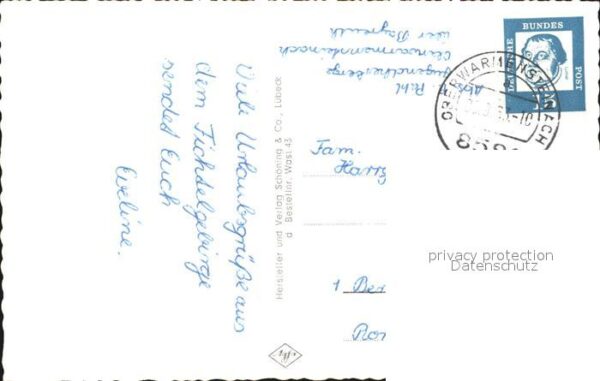 Viele Urlaubsgrüße aus
dem Fichtelgebirge
sendet Euch
Eveline.
Hersteller und Verlag Schöning & Co., Lübeck
Bestellnr. Wasl 43
Jugendherberge
Oberwarmensteinach
über Bayreuth
DEUTSCHE
BUNDES
POST
OBERWARMENSTEINACH
Fam.
1 Ber
privacy protection
Datenschutz